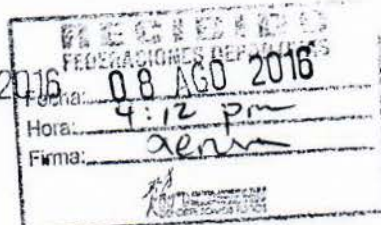 RECIBIDO
FEDERACIONES DEPORTIVAS
2016
Fecha: 08 AGO 2016
Hora: 4:12 pm
Firma: